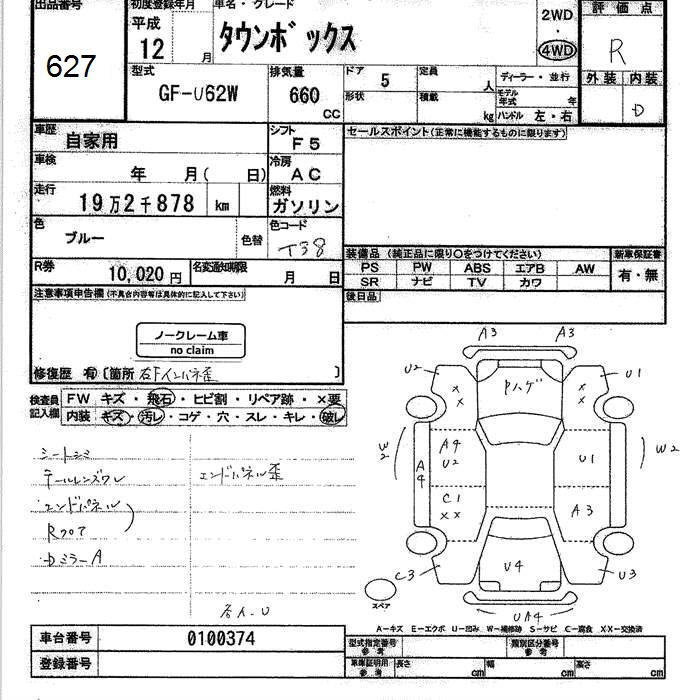 出品番号 初度登録年月 車名・グレード 評価点
627 平成 12 月 タウンボックス 2WD ・ 4WD R
外装 内装
D
型式 GF-U62W 排気量 660 CC
ドア 5 定員 人 ディーラー・並行
形状 積載 kg モデル年式 年
ハンドル 左・右
車歴 自家用 シフト F5 セールスポイント(正常に機能するものに限ります)
車検 年 月( 日) 冷房 AC
走行 19万2千878 km 燃料 ガソリン
色 ブルー 色替 色コード T38
装備品 (純正品に限り○をつけてください) 新車保証書
PS PW ABS エアB AW 有・無
SR ナビ TV カワ
R券 10,020円 名変通知期限 月 日
後日品
注意事項申告欄(不具合内容等は具体的に記入して下さい)
ノークレーム車
no claim
修復歴 有 〔箇所 右Fインパネ歪 〕
検査員記入欄 FW キズ・飛石・ヒビ割・リペア跡・×要
内装 キズ・汚レ・コゲ・穴・スレ・キレ・破レ
シートシミ
テールレンズワレ エンドパネル歪
エンドパネル
Rフロア
Dミラー A
A3 A3
U2 × × Pハゲ × × U1
W2 A4 A4 U2 U1 W2
C1 ×× A3
C3 U4 U3
スペア
UA4
A-キズ E-エクボ U-凹み W-補修跡 S-サビ C-腐食 XX-交換済
車台番号 0100374 型式指定番号 参考 類別区分番号 参考
登録番号 車庫証明用 参考 長さ cm 幅 cm 高さ cm